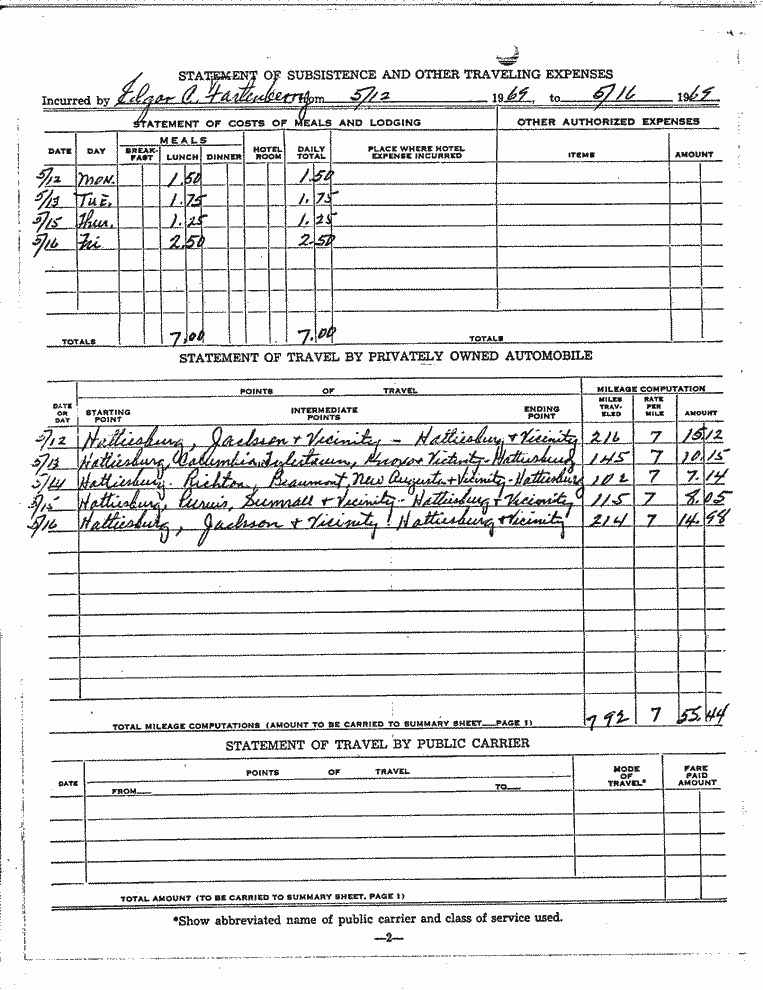 STATEMENT OF SUBSISTENCE AND OTHER TRAVELING EXPENSES
Incurred by Edgar C. Fortenberry from 5/12 1969, to 5/16 1969
STATEMENT OF COSTS OF MEALS AND LODGING OTHER AUTHORIZED EXPENSES
DATE DAY MEALS BREAK-FAST LUNCH DINNER HOTEL ROOM DAILY TOTAL PLACE WHERE HOTEL EXPENSE INCURRED ITEMS AMOUNT
5/12 MON. 1.50 1.50
5/13 TUE. 1.75 1.75
5/15 Thur. 1.25 1.25
5/16 Fri 2.50 2.50
TOTALS 7.00 7.00 TOTALS
STATEMENT OF TRAVEL BY PRIVATELY OWNED AUTOMOBILE
POINTS OF TRAVEL MILEAGE COMPUTATION
DATE OR DAY STARTING POINT INTERMEDIATE POINTS ENDING POINT MILES TRAV-ELED RATE PER MILE AMOUNT
5/12 Hattiesburg, Jackson + Vicinity - Hattiesburg + Vicinity 216 7 15.12
5/13 Hattiesburg, Columbia, Tylertown, Knoxo + Vicinity - Hattiesburg 145 7 10.15
5/14 Hattiesburg - Richton, Beaumont, New Augusta + Vicinity - Hattiesburg 102 7 7.14
5/15 Hattiesburg, Purvis, Sumrall + Vicinity - Hattiesburg + Vicinity 115 7 8.05
5/16 Hattiesburg, Jackson + Vicinity Hattiesburg + Vicinity 214 7 14.98
TOTAL MILEAGE COMPUTATIONS (AMOUNT TO BE CARRIED TO SUMMARY SHEET—PAGE 1) 792 7 55.44
STATEMENT OF TRAVEL BY PUBLIC CARRIER
DATE POINTS OF TRAVEL MODE OF TRAVEL* FARE PAID AMOUNT
FROM— TO—
TOTAL AMOUNT (TO BE CARRIED TO SUMMARY SHEET, PAGE 1)
*Show abbreviated name of public carrier and class of service used.
—2—